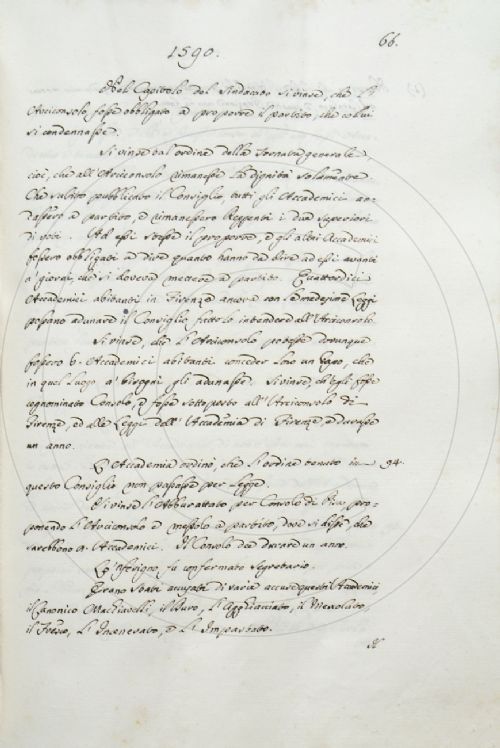 66.
1590.
Nel Capitolo del Sindacato si vinse, che L'
Arciconsolo fosse obbligato a proporre il partito, che colui
si condennasse.
Si vinse tal'ordine della Tornata generale,
cioè, che all'Arciconsolo rimanesse la dignità solamente.
Che subito pubblicato il Consiglio, tutti gli Accademici an-
dassero a partito, e rimanessero Reggenti i due superiori
di voti. Ad essi stesse il proporre, e gli altri Accademici
fossero obbligati a dire quanto hanno da dire ad essi avanti
a' giorni, che si doveva mettere a partito. Quattordici
Accademici abitanti in Firenze ancora con le medesime Leggi
possano adunare il Consiglio, fattolo intendere all'Arciconsolo.
Si vinse, che L'Arciconsolo potesse dovunque
fossero 6. Accademici abitanti conceder loro un Capo, che
in quel Luogo a' bisogni gli adunasse. Si vinse ch'egli fosse
cognominato Consolo, e fosse sottoposto all'Arciconsolo di
Firenze, ed alle Leggi dell'Accademia di Firenze, e durasse
un anno.
L'Accademia ordinò, che l'ordine tenuto in 94.
questo Consiglio non passasse per Legge.
Si vinse l'Abburattato per Consolo di Pisa, pro-
ponendo L'Arciconsolo e messolo a partito, dove si disse, che
sarebbono Accademici. Il Consolo dee durare un anno.
Lo 'Nferigno, fu confermato Segretario.
Erano stati accusati di varie accuse questi Accademici
il Canonico Machiavelli, il Duro, L'Agghiacciato, il
il Fresco, L' e L'Impastato.
Il